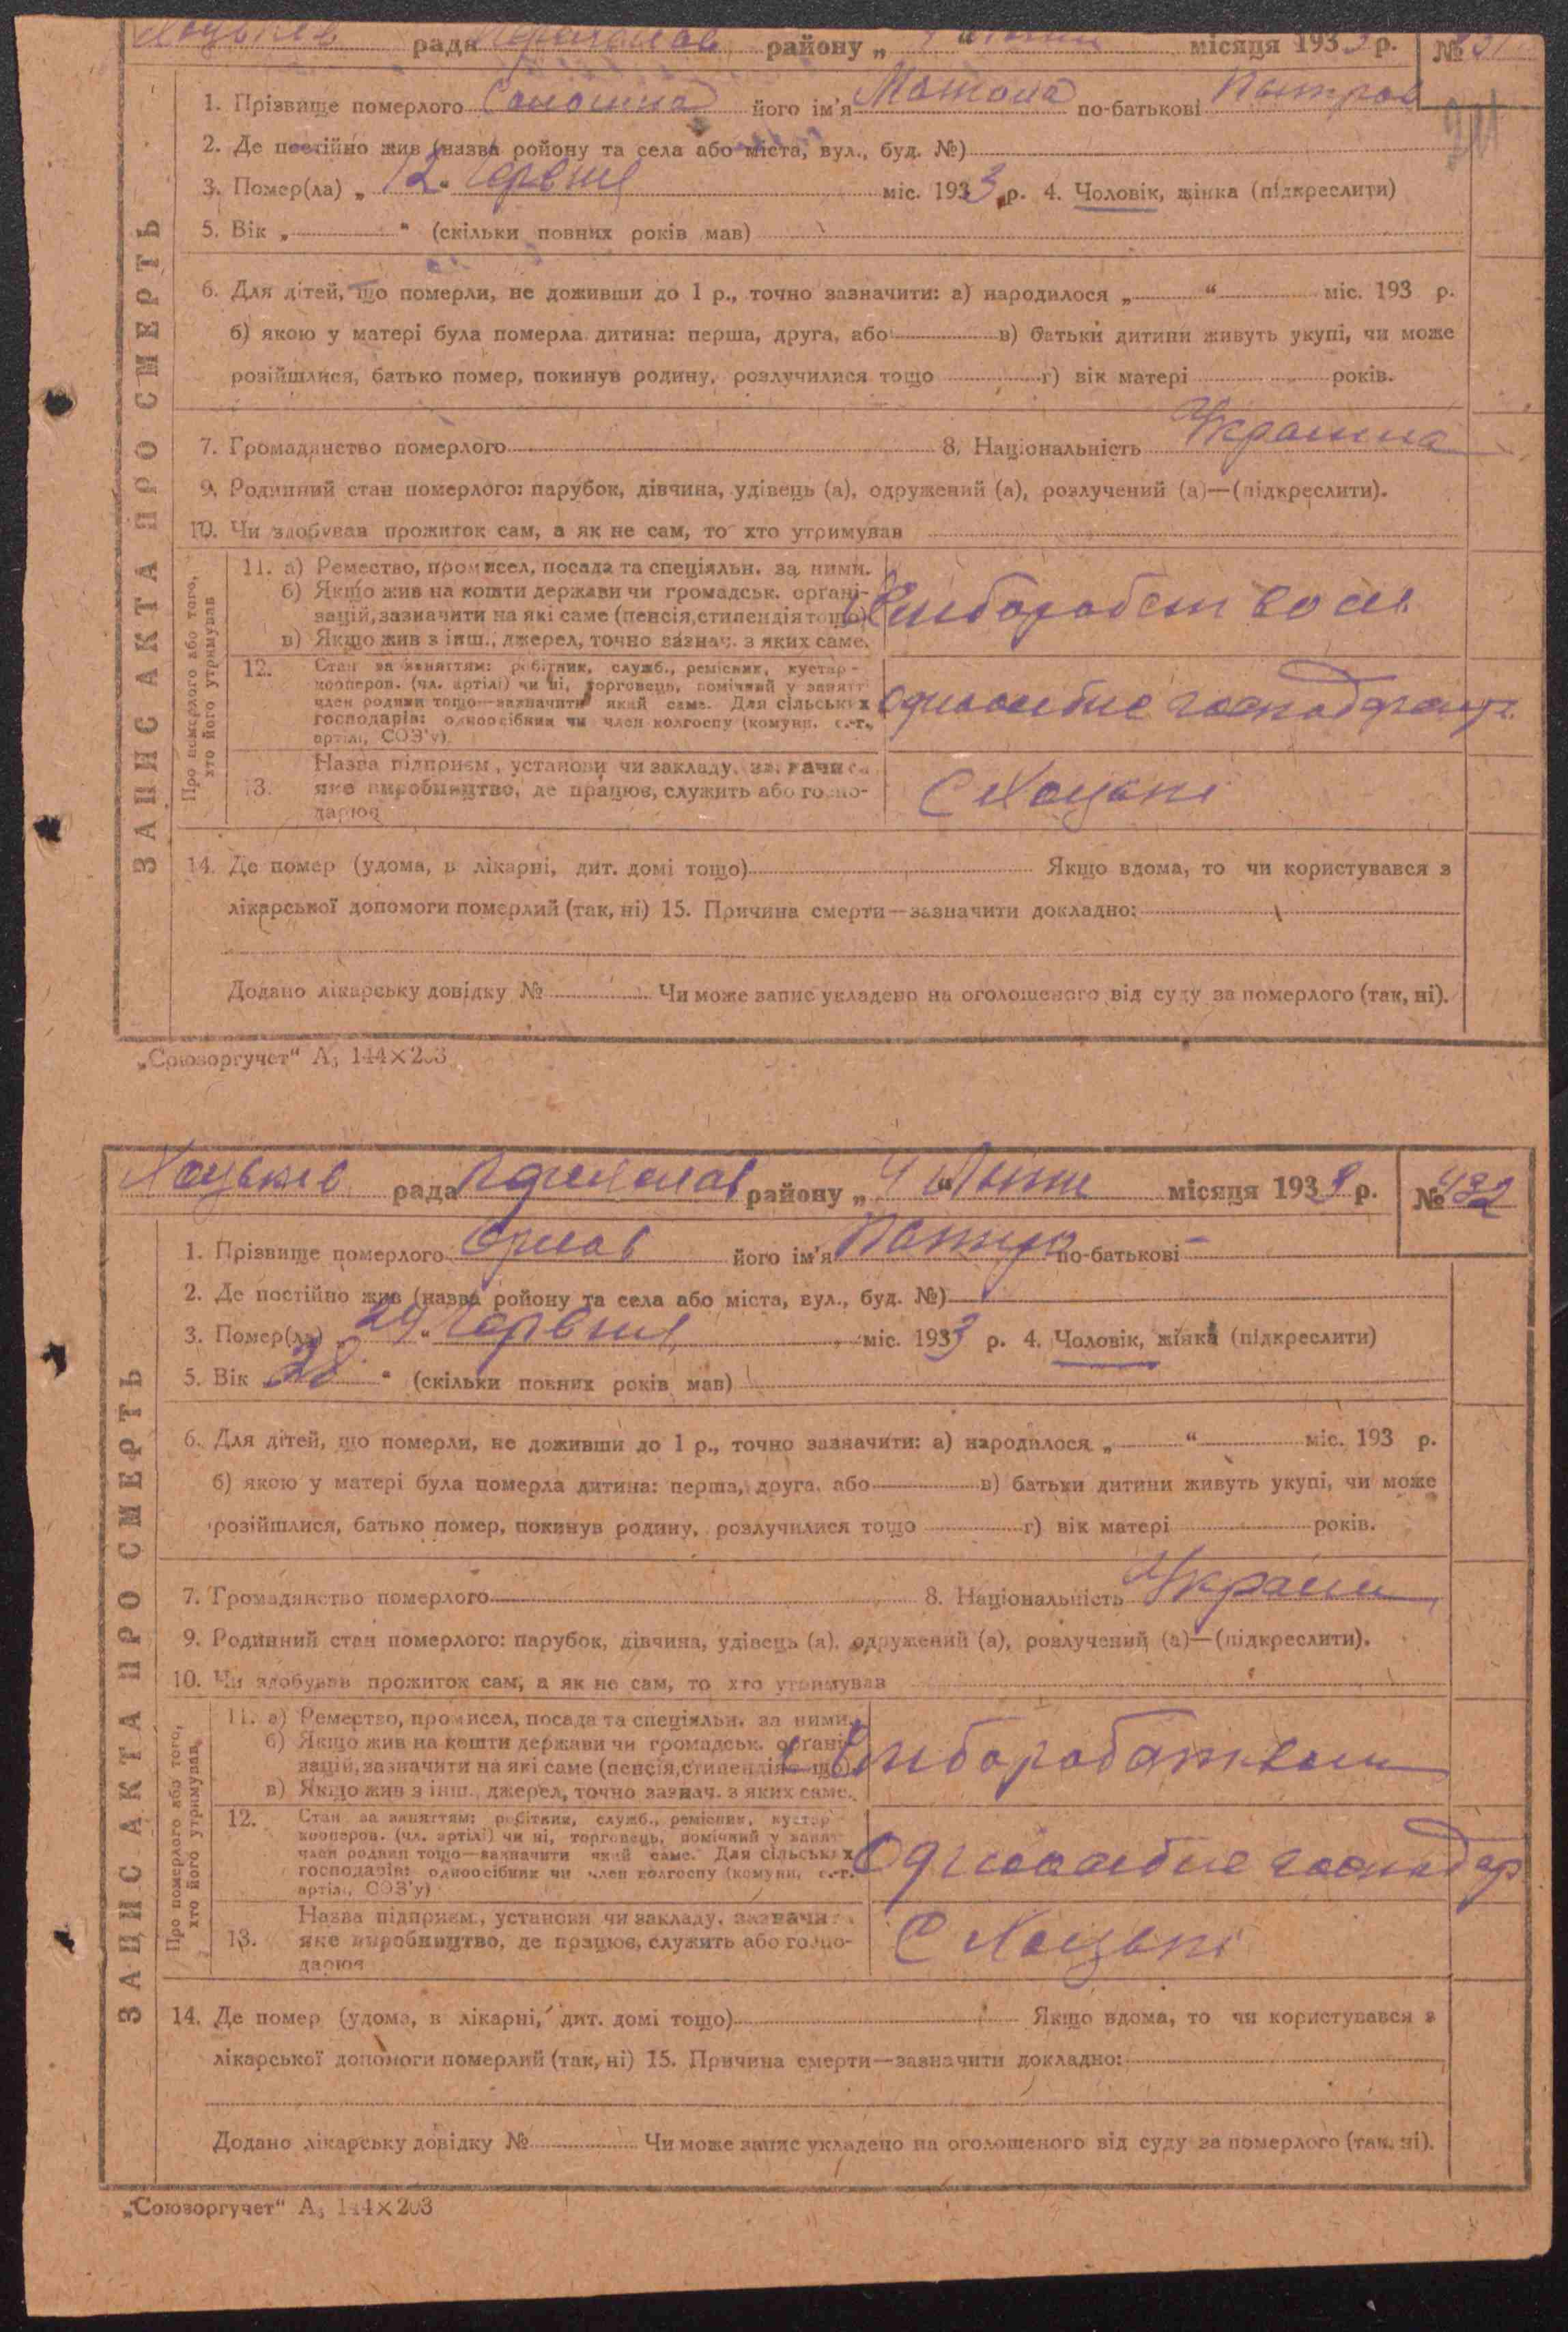 рада району „ 4 “ місяця 1933 р. №
1. Прізвище померлого його ім'я по-батькові
2. Де постійно жив (назва ройону та села або міста, вул., буд. №)
3. Помер(ла) „ 12 “ Червня міс. 1933 р. 4. Чоловік, жінка (підкреслити)
5. Вік „ “ (скільки повних років мав)
6. Для дітей, що померли, не доживши до 1 р., точно зазначити: а) народилося „ “ міс. 193 р.
б) якою у матері була померла дитина: перша, друга, або в) батьки дитини живуть укупі, чи може
розійшлися, батько помер, покинув родину, розлучилися тощо г) вік матері років.
7. Громадянство померлого 8. Національність
9. Родинний стан померлого: парубок, дівчина, удівець (а), одружений (а), розлучений (а)—(підкреслити).
10. Чи здобував прожиток сам, а як не сам, то хто утримував
ЗАПИС АКТА ПРО СМЕРТЬ
Про померлого або того,
хто його утримував
11. а) Ремество, промисел, посада та спеціяльн. за ними.
б) Якщо жив на кошти держави чи громадськ. органі-
зацій, зазначити на які саме (пенсія, стипендія тощо)
в) Якщо жив з інш., джерел, точно зазнач. з яких саме.
12. Стан за заняттям: робітник, служб., ремісник, кустар-
кооперов. (чл. артілі) чи ні, торговець, помічний у занятт
член родини тощо—зазначити який саме. Для сільських
господарів: одноосібник чи член колгоспу (комуни, с.-г.
артілі, СОЗ'у)
13. Назва підприєм., установи чи закладу, зазначи
яке виробництво, де працює, служить або госпо-
дарює
С Хоцькі
14. Де помер (удома, в лікарні, дит. домі тощо) Якщо вдома, то чи користувався з
лікарської допомоги померлий (так, ні) 15. Причина смерти—зазначити докладно:
Додано лікарську довідку № Чи може запис укладено на оголошеного від суду за померлого (так, ні).
„Союзоргучет“ А5 144×203
рада району „ 4 “ місяця 193 р. № 432
1. Прізвище померлого його ім'я по-батькові
2. Де постійно жив (назва ройону та села або міста, вул., буд. №)
3. Помер(ла) 29 “ Червня міс. 1933 р. 4. Чоловік, жінка (підкреслити)
5. Вік „ 38 “ (скільки повних років мав)
6. Для дітей, що померли, не доживши до 1 р., точно зазначити: а) народилося „ “ міс. 193 р.
б) якою у матері була померла дитина: перша, друга, або в) батьки дитини живуть укупі, чи може
розійшлися, батько помер, покинув родину, розлучилися тощо г) вік матері років.
7. Громадянство померлого 8. Національність
9. Родинний стан померлого: парубок, дівчина, удівець (а), одружений (а), розлучений (а)—(підкреслити).
10. Чи здобував прожиток сам, а як не сам, то хто утримував
ЗАПИС АКТА ПРО СМЕРТЬ
Про померлого або того,
хто його утримував
11. а) Ремество, промисел, посада та спеціяльн. за ними.
б) Якщо жив на кошти держави чи громадськ. органі-
зацій, зазначити на які саме (пенсія, стипендія тощо)
в) Якщо жив з інш., джерел, точно зазнач. з яких саме.
12. Стан за заняттям: робітник, служб., ремісник, кустар
кооперов. (чл. артілі) чи ні, торговець, помічний у занят
член родини тощо—зазначити який саме. Для сільських
господарів: одноосібник чи член колгоспу (комуни, с.-г.
артілі, СОЗ'у)
13. Назва підприєм., установи чи закладу, зазначи
яке виробництво, де працює, служить або госпо-
дарює
С Хоцькі
14. Де помер (удома, в лікарні, дит. домі тощо) Якщо вдома, то чи користувався з
лікарської допомоги померлий (так, ні) 15. Причина смерти—зазначити докладно:
Додано лікарську довідку № Чи може запис укладено на оголошеного від суду за померлого (так, ні).
„Союзоргучет“ А5 144×203